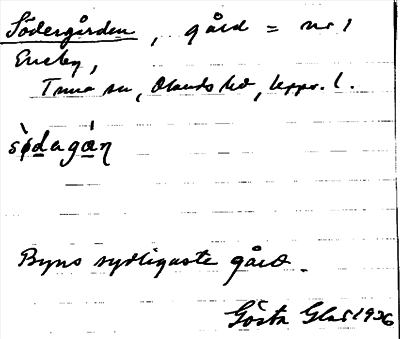 Södergården, gård = nr 1
Eneby,
Tuna sn, Olands hd, Upps. l.
sø̀dagán
Byns sydligaste gård.
Gösta Glas 1936